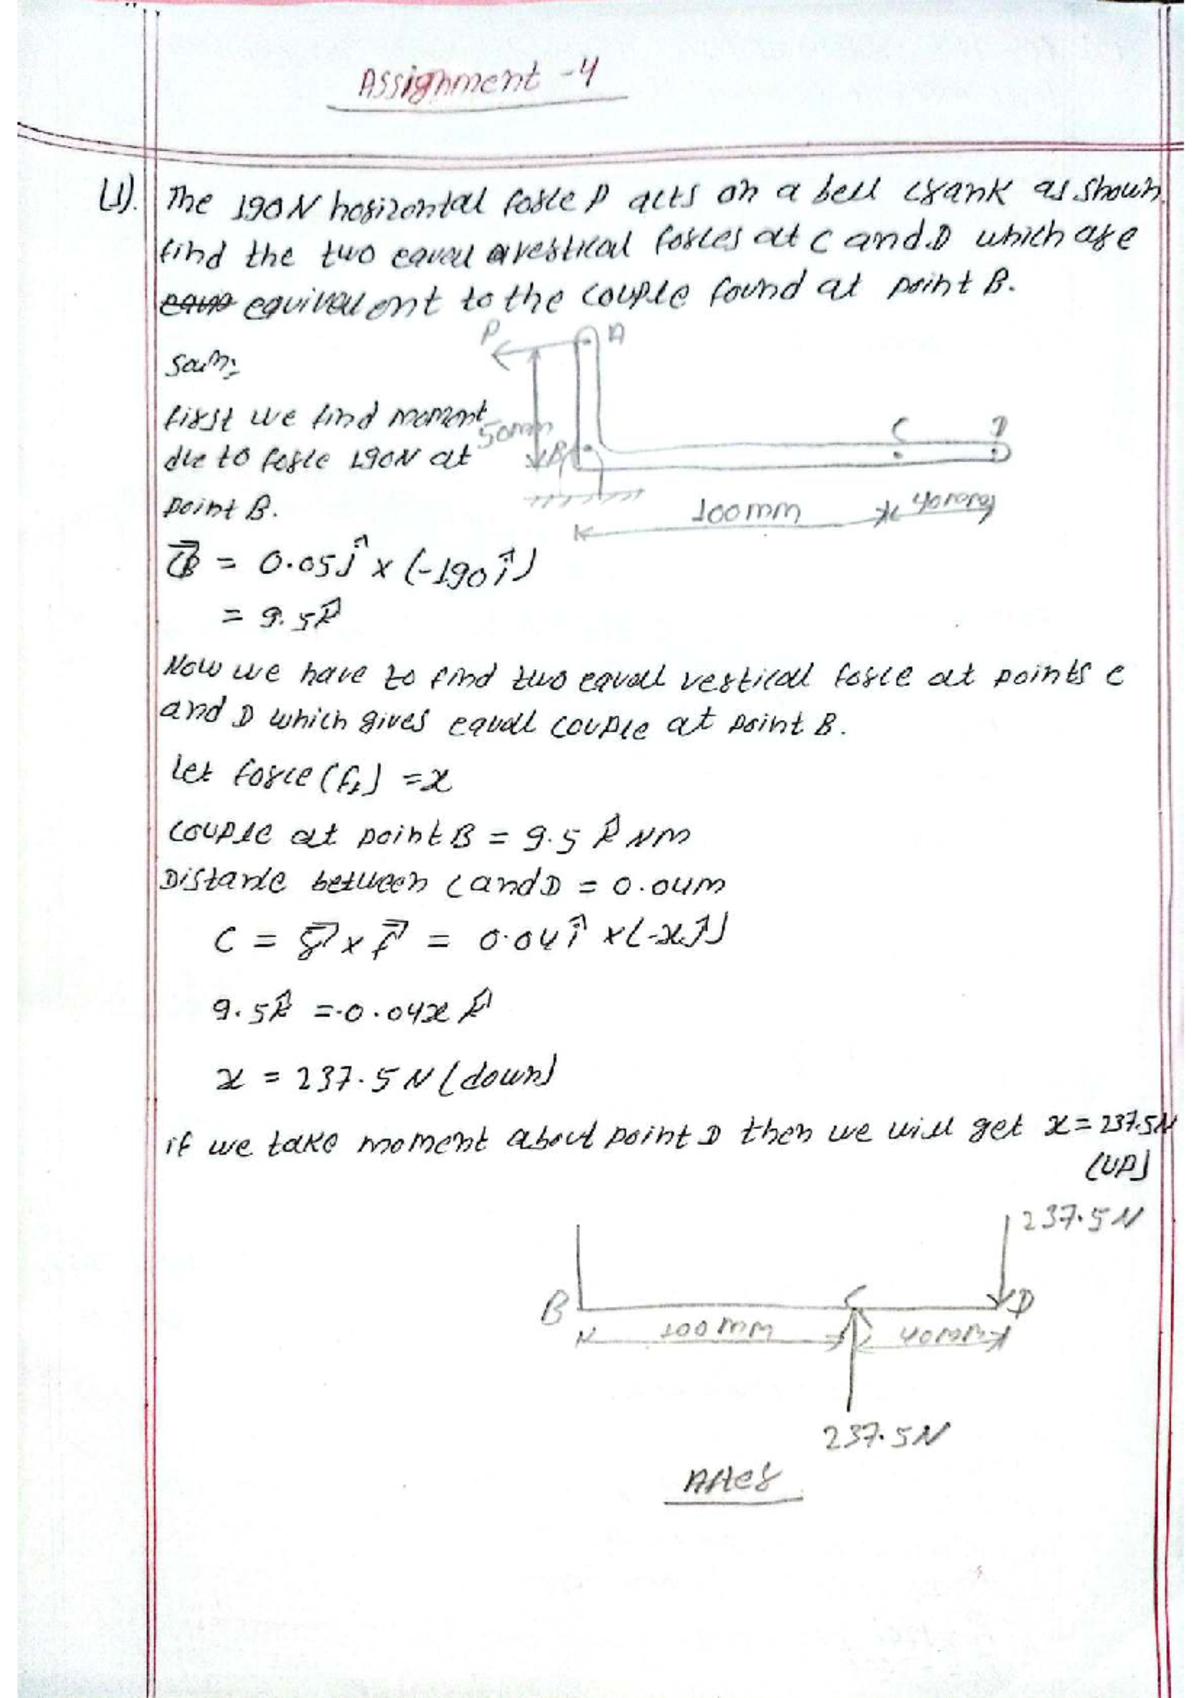 Assignment -4
(1). The 190N horizontal force P acts on a bell crank as shown.
find the two equal vertical forces at C and D which are
equivalent to the couple found at point B.
P A
Soln:
first we find moment
50mm
C D
due to force 190N at
B
point B.
100mm 40mm
= 0.05ĵ x (-190î)
= 9.5k̂
Now we have to find two equall vertical force at points C
and D which gives equall couple at point B.
Let force (F,) = x
couple at point B = 9.5 k̂ Nm
Distance between C and D = 0.04m
C = r⃗ x F⃗ = 0.04î x(-xĵ)
9.5k̂ = -0.04x k̂
x = 237.5 N (down)
if we take moment about point D then we will get x = 237.5N
(UP)
237.5N
B C D
100mm 40mm
237.5N
After